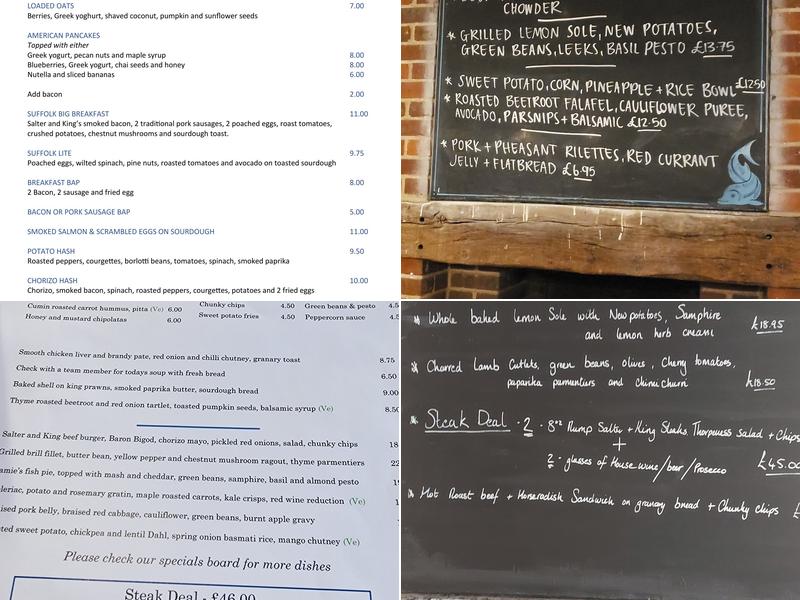 LOADED OATS 7.00
Berries, Greek yoghurt, shaved coconut, pumpkin and sunflower seeds
AMERICAN PANCAKES
Topped with either
Greek yogurt, pecan nuts and maple syrup 8.00
Blueberries, Greek yogurt, chai seeds and honey 8.00
Nutella and sliced bananas 6.00
Add bacon 2.00
SUFFOLK BIG BREAKFAST 11.00
Salter and King's smoked bacon, 2 traditional pork sausages, 2 poached eggs, roast tomatoes,
crushed potatoes, chestnut mushrooms and sourdough toast.
SUFFOLK LITE 9.75
Poached eggs, wilted spinach, pine nuts, roasted tomatoes and avocado on toasted sourdough
BREAKFAST BAP 8.00
2 Bacon, 2 sausage and fried egg
BACON OR PORK SAUSAGE BAP 5.00
SMOKED SALMON & SCRAMBLED EGGS ON SOURDOUGH 11.00
POTATO HASH 9.50
Roasted peppers, courgettes, borlotti beans, tomatoes, spinach, smoked paprika
CHORIZO HASH 10.00
Chorizo, smoked bacon, spinach, roasted peppers, courgettes, potatoes and 2 fried eggs
CHOWDER
* GRILLED LEMON SOLE, NEW POTATOES,
GREEN BEANS, LEEKS, BASIL PESTO £13.75
* SWEET POTATO, CORN, PINEAPPLE + RICE BOWL £12.50
* ROASTED BEETROOT FALAFEL, CAULIFLOWER PUREE,
AVOCADO, PARSNIPS + BALSAMIC £12.50
* PORK + PHEASANT RILETTES, RED CURRANT
JELLY + FLATBREAD £6.95
Cumin roasted carrot hummus, pitta (Ve) 6.00 Chunky chips 4.50 Green beans & pesto 4.5
Honey and mustard chipolatas 6.00 Sweet potato fries 4.50 Peppercorn sauce 4.
Smooth chicken liver and brandy pate, red onion and chilli chutney, granary toast 8.75
Check with a team member for todays soup with fresh bread 6.50
Baked shell on king prawns, smoked paprika butter, sourdough bread 9.00
Thyme roasted beetroot and red onion tartlet, toasted pumpkin seeds, balsamic syrup (Ve) 8.50
Salter and King beef burger, Baron Bigod, chorizo mayo, pickled red onions, salad, chunky chips 18
Grilled brill fillet, butter bean, yellow pepper and chestnut mushroom ragout, thyme parmentiers 22
amie's fish pie, topped with mash and cheddar, green beans, samphire, basil and almond pesto 19
leriac, potato and rosemary gratin, maple roasted carrots, kale crisps, red wine reduction (Ve) 1
ised pork belly, braised red cabbage, cauliflower, green beans, burnt apple gravy
ted sweet potato, chickpea and lentil Dahl, spring onion basmati rice, mango chutney (Ve)
Please check our specials board for more dishes
Steak Deal - £46.00
* Whole baked lemon Sole with New potatoes, Samphire
and lemon herb cream £18.95
* Charred Lamb Cutlets, green beans, olives, Cherry tomatoes,
paparika parmentiers and chimichurri £18.50
* Steak Deal · 2 · 8oz Rump Salter + King Steaks. Thorpeness salad + Chips
+
2 · glasses of House wine/beer/Prosecco £45.00
* Hot Roast beef + Horseradish Sandwich on granary bread + Chunky chips £